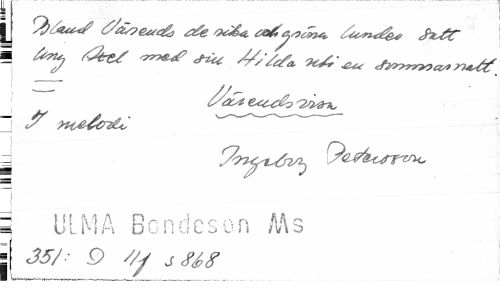 Bland Värends de rika och gröna lunder satt
ung Axel med sin Hilda uti en sommarnatt.
Värendsvisa
I melodi
Ingeborg Petersson
ULMA Bondeson Ms
351: D 4f s 868